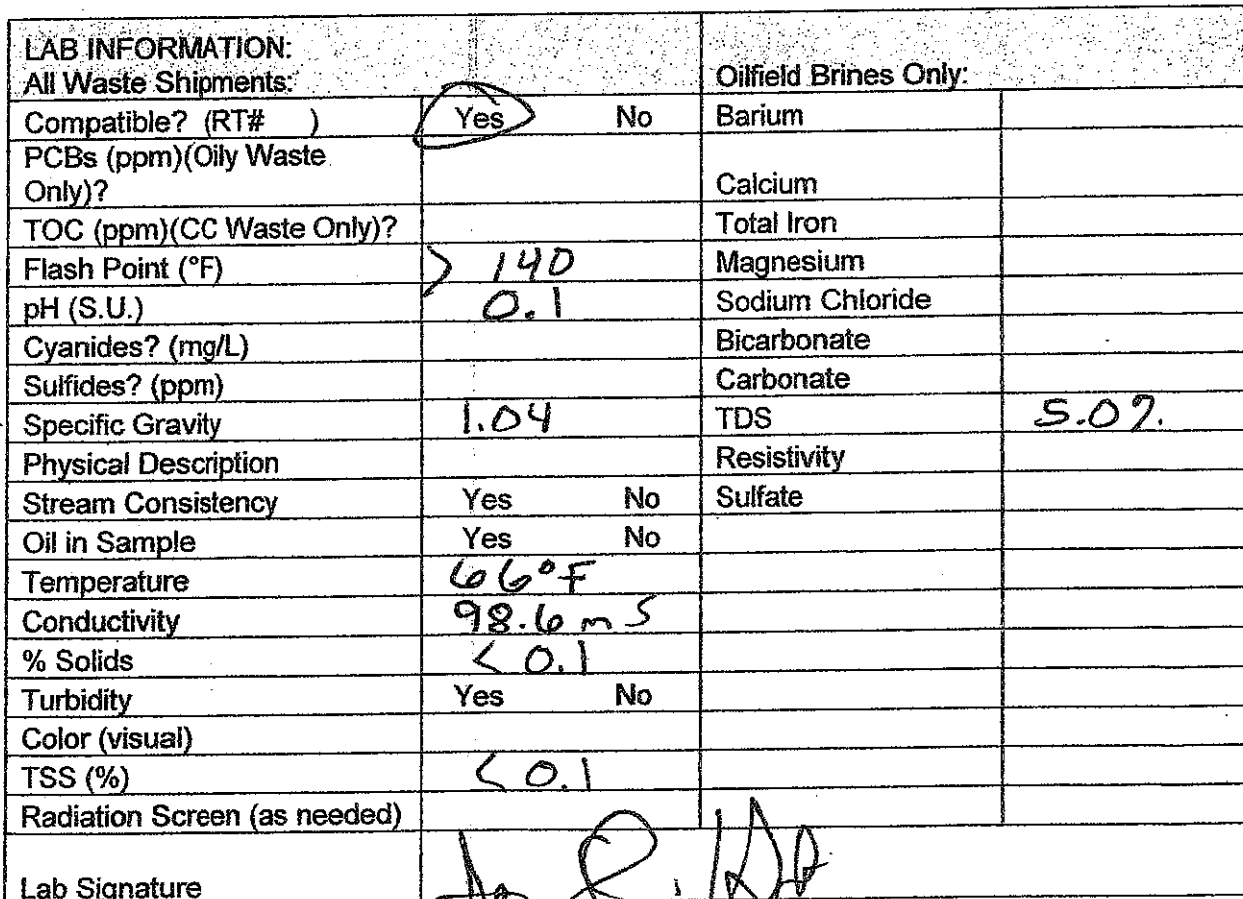 LAB INFORMATION:
All Waste Shipments: Oilfield Brines Only:
Compatible? (RT# ) Yes No Barium
PCBs (ppm)(Oily Waste
Only)? Calcium
TOC (ppm)(CC Waste Only)? Total Iron
Flash Point (°F) > 140 Magnesium
pH (S.U.) 0.1 Sodium Chloride
Cyanides? (mg/L) Bicarbonate
Sulfides? (ppm) Carbonate
Specific Gravity 1.04 TDS 5.0%
Physical Description Resistivity
Stream Consistency Yes No Sulfate
Oil in Sample Yes No
Temperature 66°F
Conductivity 98.6 mS
% Solids < 0.1
Turbidity Yes No
Color (visual)
TSS (%) < 0.1
Radiation Screen (as needed)
Lab Signature